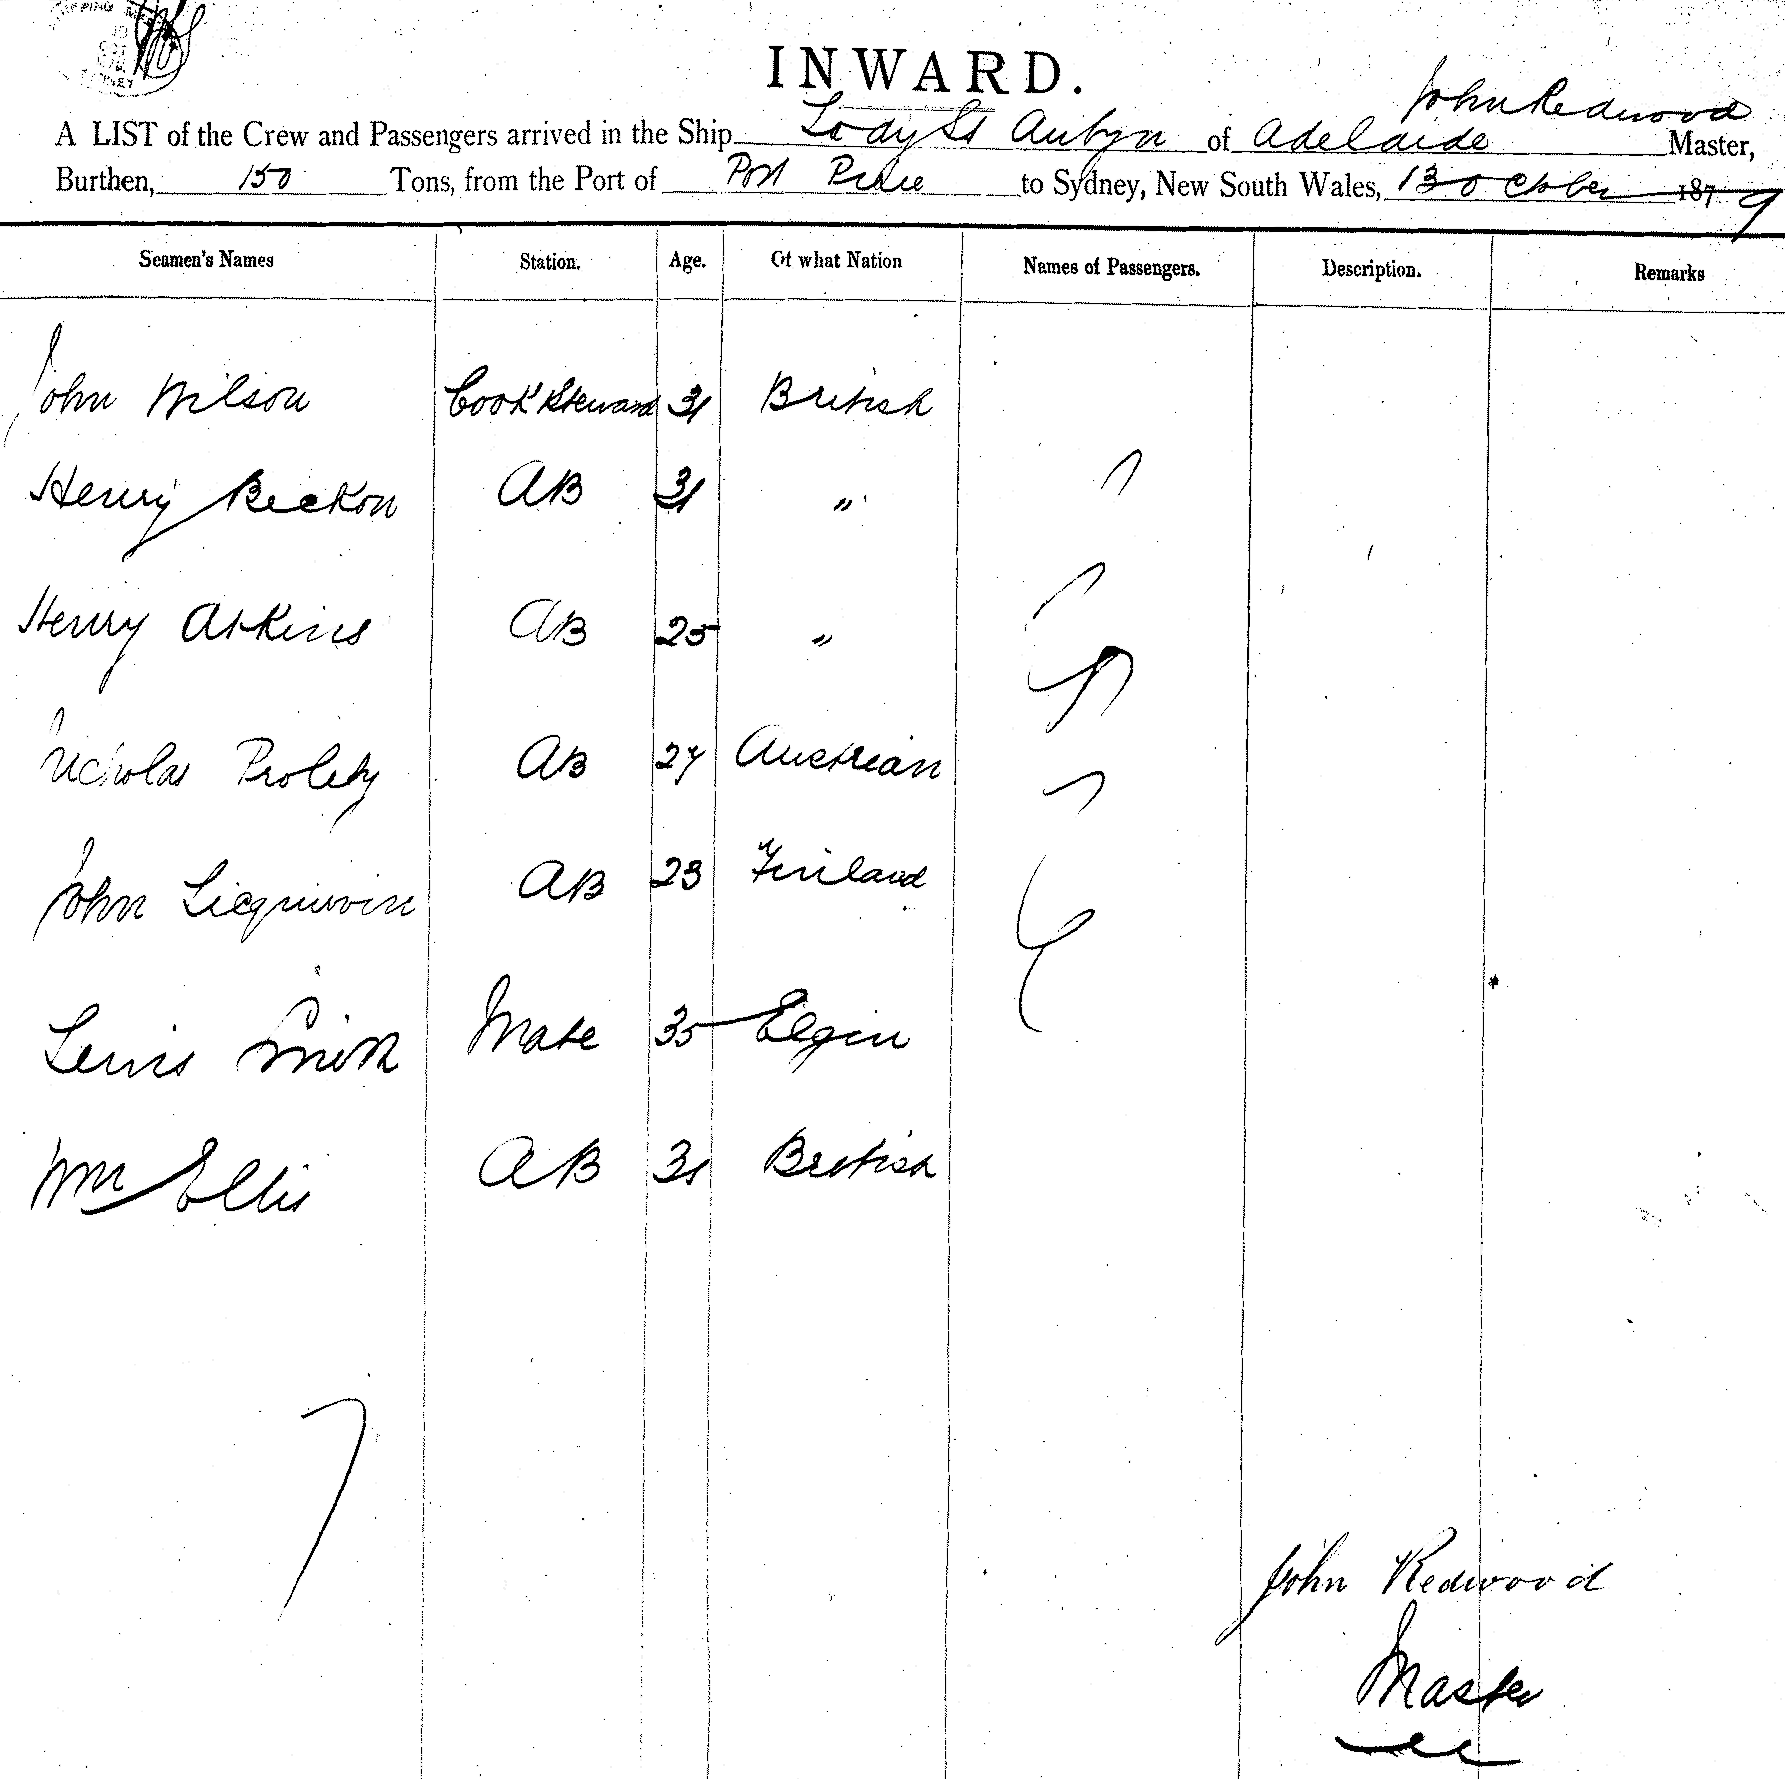 INWARD.
John Redwood
A LIST of the Crew and Passengers arrived in the Ship Lady St Aubyn of Adelaide Master,
Burthen, 150 Tons, from the Port of Port Pirie to Sydney, New South Wales, 13 October 1879
Seamen's Names Station. Age. Of what Nation Names of Passengers. Description. Remarks
John Wilson Cook & Steward 31 British
Henry Beckon AB 31 "
Henry Atkins AB 25 "
Nicholas AB 27 Austrian
John AB 23 Finland
Lewis Smith Mate 35 Elgin
Wm Ellis AB 31 British
7
John Redwood
Master